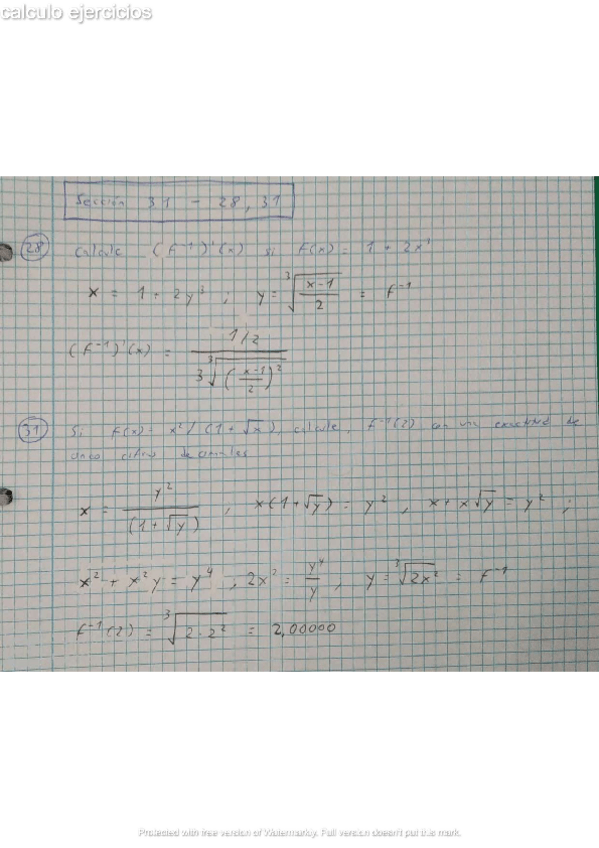 calculo ejercicios
Sección 31 - 28, 31
28 Calcule (f⁻¹)'(x) si f(x) = 1 + 2x³
x = 1 + 2y³ ; y = ∛((x-1)/2) = f⁻¹
(f⁻¹)'(x) = (1/2) / (3∛(((x-1)/2)²))
31 Si f(x) = x² / (1 + √x), calcule, f⁻¹(2) con una exactitud de
cinco cifras decimales
x = y² / (1 + √y) , x(1 + √y) = y² , x + x√y = y² ;
x² + x²y = y⁴ , 2x² = y⁴/y , y = ∛(2x²) = f⁻¹
f⁻¹(2) = ∛(2·2²) = 2,00000
Protected with free version of Watermarkly. Full version doesn't put this mark.